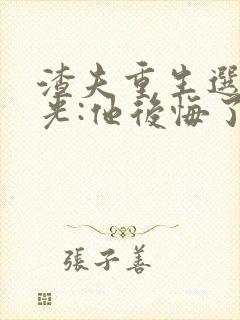 渣夫重生選
光:他後悔了
張子善